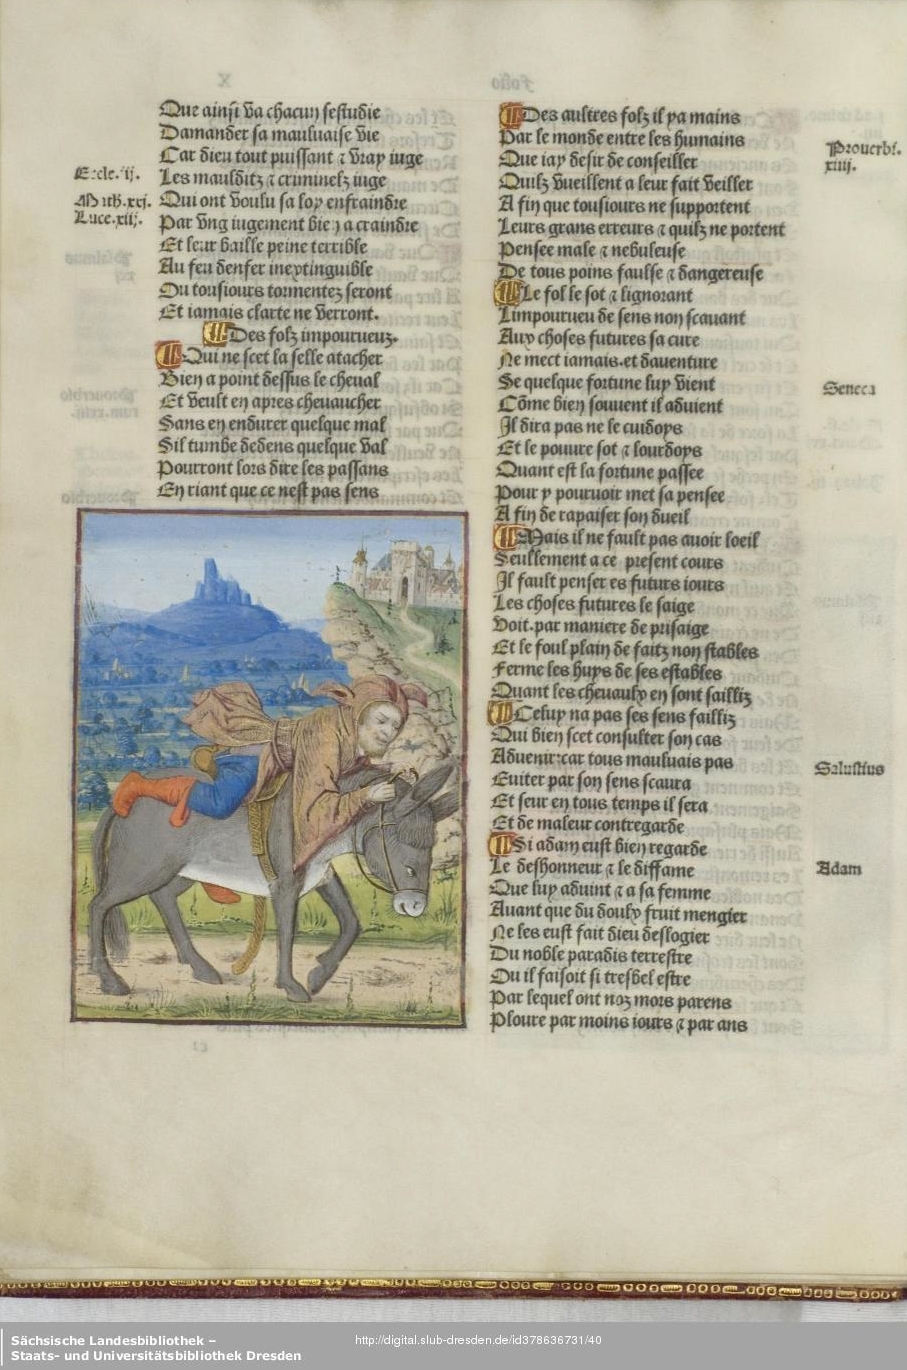 Que ainsi va chacun sestudie
Damander sa mauluaise vie
Car dieu tout puissant ⁊ vray iuge
Eccle. ij.
Les maulditz ⁊ criminelz iuge
Math. xxj.
Qui ont voulu sa loy enfraindre
Luce. xij.
Par vng iugement bien a craindre
Et leur baille peine terrible
Au feu denfer inextinguible
Ou tousiours tormentez seront
Et iamais clarte ne verront.
Des folz impourueuz.
Qui ne scet la selle atacher
Bien a point dessus le cheual
Et veult en apres cheuaucher
Sans en endurer quelque mal
Sil tumbe dedens quelque val
Pourront lors dire les passans
En riant que ce nest pas sens
Des aultres folz il ya mains
Par le monde entre les humains
Prouerbi. xiiij.
Que iay desir de conseiller
Quilz vueillent a leur fait veiller
A fin que tousiours ne supportent
Leurs grans erreurs ⁊ quilz ne portent
Pensee male ⁊ nebuleuse
De tous poins faulse ⁊ dangereuse
Le fol le sot ⁊ lignorant
Limpourueu de sens non scauant
Aux choses futures sa cure
Ne mect iamais.et dauenture
Se quelque fortune luy vient
Seneca
Cõme bien souuent il aduient
Il dira pas ne le cuidoys
Et le pouure sot ⁊ lourdoys
Quant est la fortune passee
Pour y pouruoir met sa pensee
A fin de rapaiser son dueil
Mais il ne fault pas auoir loeil
Seullement a ce present cours
Il fault penser es futurs iours
Les choses futures le saige
Voit.par maniere de prisaige
Et le foul plain de faitz non stables
Ferme les huys de ses estables
Quant les cheuaulx en sont sailliz
Celuy na pas ses sens failliz
Qui bien scet consulter son cas
Aduenir:car tous mauluais pas
Salustius
Euiter par son sens scaura
Et seur en tous temps il sera
Et de maleur contregarde
Si adam eust bien regarde
Le deshonneur ⁊ le diffame
Adam
Que luy aduint ⁊ a sa femme
Auant que du doulx fruit mengier
Ne les eust fait dieu deslogier
Du noble paradis terrestre
Ou il faisoit si tresbel estre
Par lequel ont noz mors parens
Ploure par moins iours ⁊ par ans
Sächsische Landesbibliothek –
Staats- und Universitätsbibliothek Dresden
http://digital.slub-dresden.de/id378636731/40